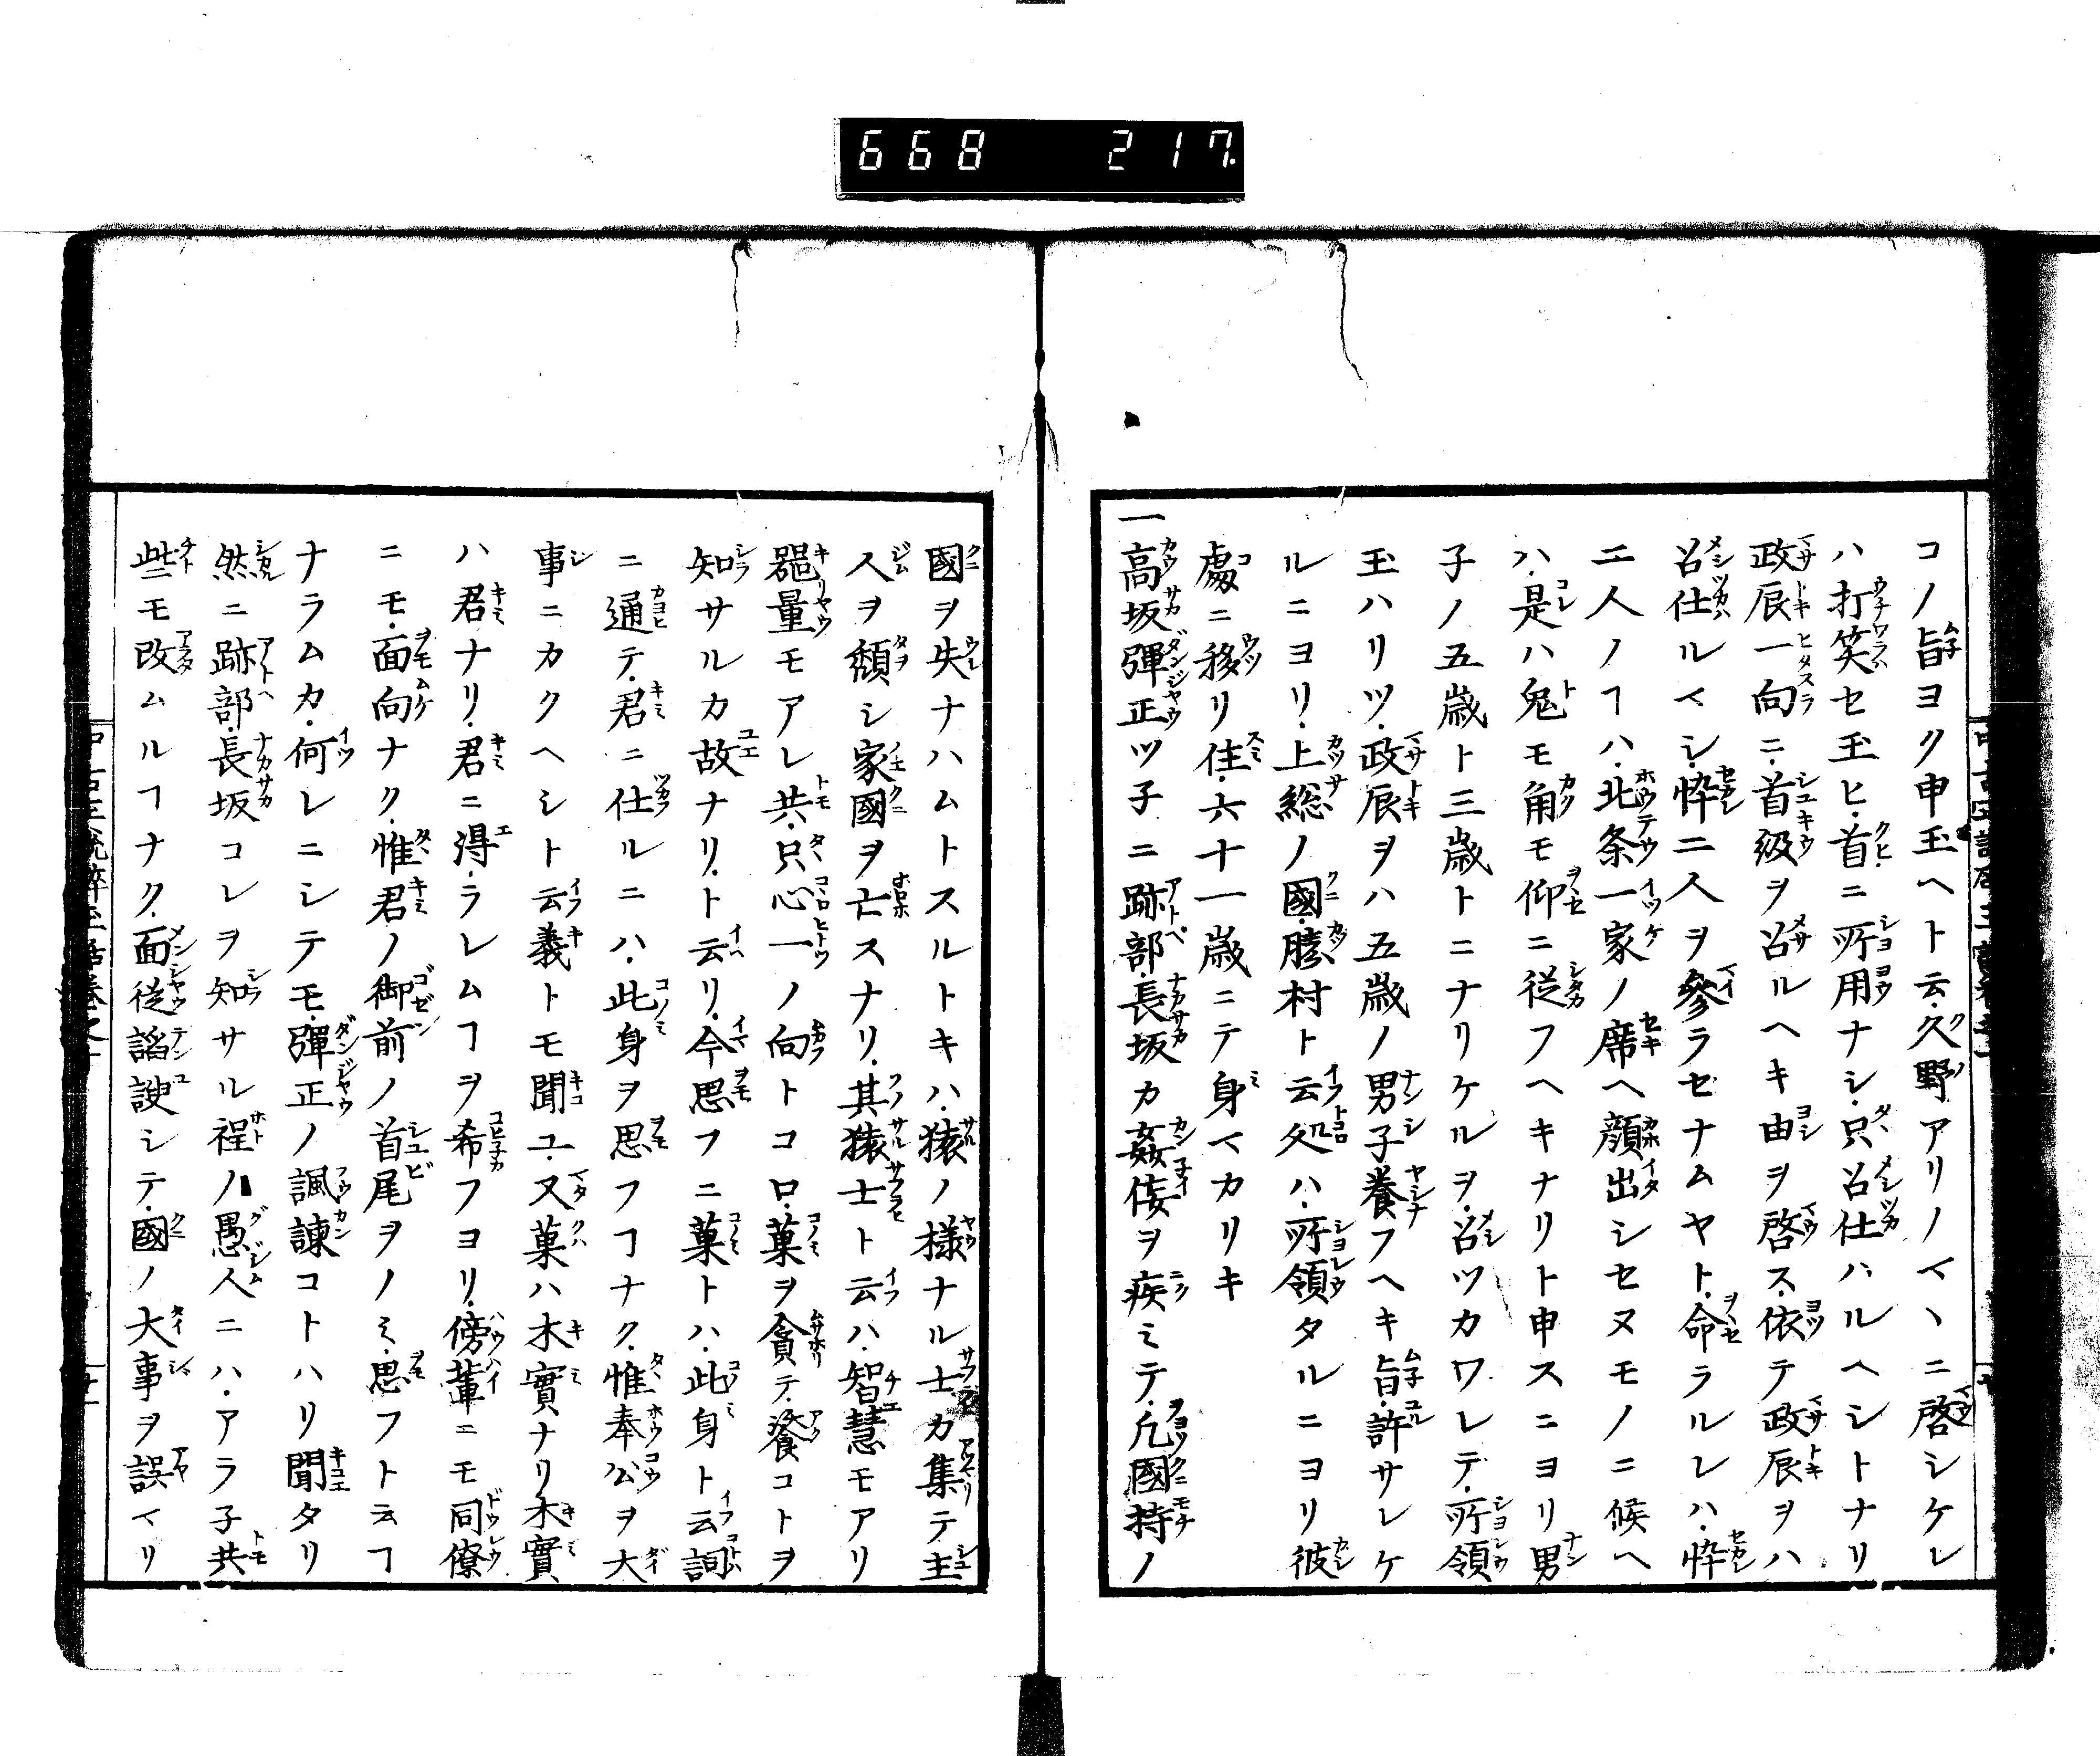 668 217
コノ旨ヨク申玉ヘト云久野アリノマヽニ啓シケレ
ハ打笑セ玉ヒ首ニ所用ナシ只召仕ハルヘシトナリ
政辰一向ニ首級ヲ召ルヘキ由ヲ啓ス依テ政辰ヲハ
召仕ルマシ悴二人ヲ參ラセナムヤト命ラルレハ悴
二人ノヿハ北条一家ノ席ヘ顔出シセヌモノニ候ヘ
ハ是ハ鬼モ角モ仰ニ從フヘキナリト申スニヨリ男
子ノ五歳ト三歳トニナリケルヲ召ツカワレテ所領
玉ハリツ政辰ヲハ五歳ノ男子養フヘキ旨許サレケ
ルニヨリ上総ノ國勝村ト云処ハ所領タルニヨリ彼
處ニ移リ住六十一歳ニテ身マカリキ
一高坂彈正ツ子ニ跡部長坂カ姦佞ヲ疾ミテ凡國持ノ
國ヲ失ナハムトスルトキハ猿ノ様ナル士カ集テ主
人ヲ頽シ家國ヲ亡スナリ其猿士ト云ハ智慧モアリ
噐量モアレ共只心一ノ向トコロ菓ヲ貪テ飱コトヲ
知サルカ故ナリト云リ今思フニ菓トハ此身ト云詞
ニ通テ君ニ仕ルニハ此身ヲ思フヿナク惟奉公ヲ大
事ニカクヘシト云義トモ聞ユ又菓ハ木實ナリ木實
ハ君ナリ君ニ得ラレムヿヲ希フヨリ傍輩ニモ同僚
ニモ面向ナク惟君ノ御前ノ首尾ヲノミ思フト云ヿ
ナラムカ何レニシテモ彈正ノ諷諫コトハリ聞タリ
然ニ跡部長坂コレヲ知サル程ノ愚人ニハアラ子共
些ニモ改ムルヿナク面從諂諛シテ國ノ大事ヲ誤マリ